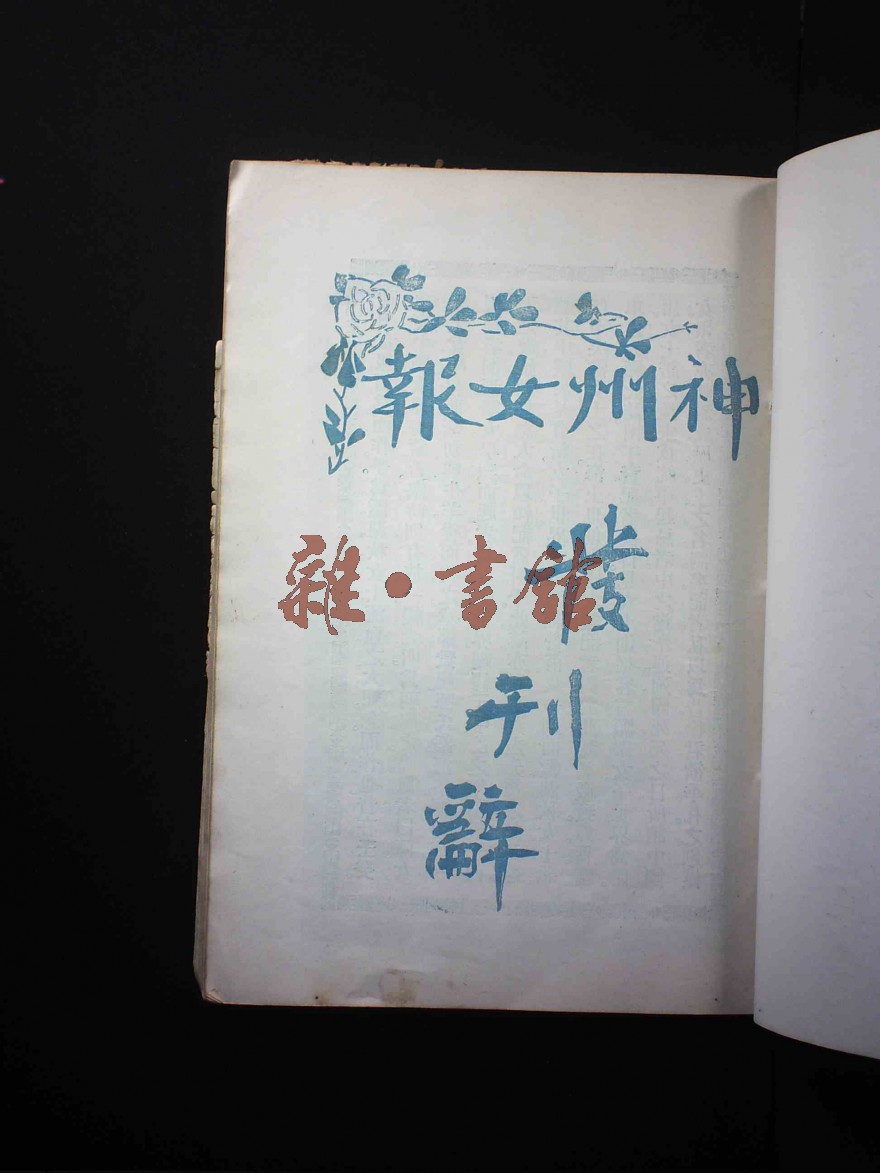 神州女報
發刊辭
雜·書館